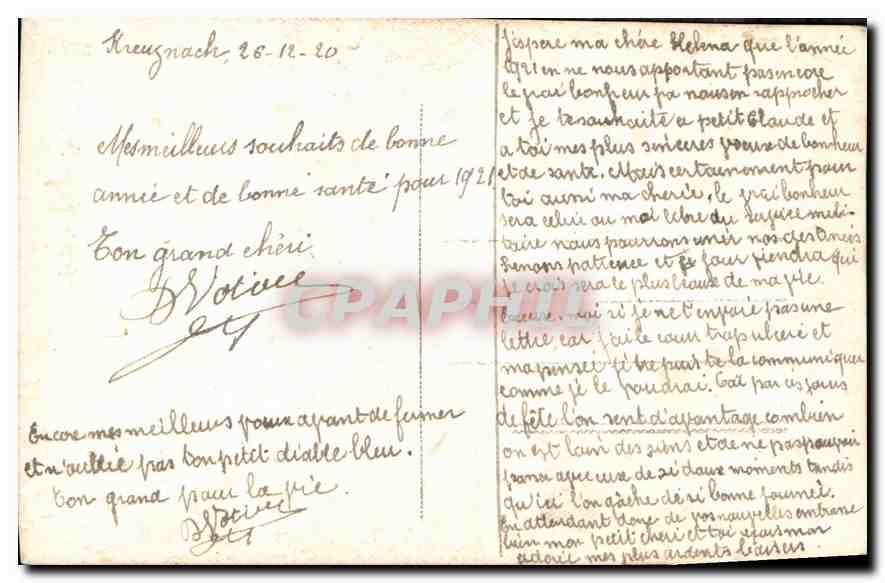 Kreuznach, 26-12-20
Mes meilleurs souhaits de bonne
année et de bonne santé pour 1921
Ton grand chéri
Encore mes meilleurs voeux avant de fermer
et n'oublie pas ton petit diable bleu.
Ton grand pour la vie.
J'espere ma chére Helena que l'année
1921 en ne nous apportant pas encore
le vrai bonheur va nous en rapprocher
et je te souhaite a petit Claude et
a toi mes plus sincères voeux de bonheur
et de santé. Mais certainement pour
toi aussi ma cherie, le vrai bonheur
sera celui au moi libre du service mili-
taire nous pourrons unir nos destinés
Prenons patience et ce jour viendra qui
je crois sera le plus beaux de ma vie.
Excuse-moi si je ne t'envoie pas une
lettre, car j'ai le coeur trop ulceré et
ma penseé je ne puis te la communiquer
comme je le voudrai. Car par ces jours
de fête l'on sent d'avantage combien
on est loin des siens et de ne pas pouvoir
passer avec eux de si doux moments tandis
qu'ici l'on gâche de si bonne journeé.
En attendant de vos nouvelles embrasse
bien mon petit cheri et toi reçois mon
adorée mes plus ardents baisers.
CPAPHIL